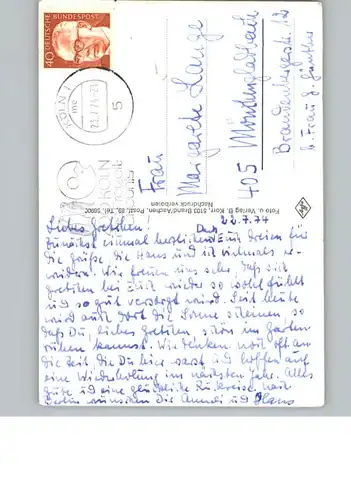 DEUTSCHE BUNDESPOST
40
KÖLN 1
mc
22.7.74-21
5
KÖLN
Frau
Margarete Lange
405 Mönchengladbach
Brandenbergerstr. 12
b. Frau G. Günther
Foto u. Verlag B. Korr, 5103 Brand/Aachen, Postf. 89, Tel. 56902
Nachdruck verboten
22.7.74
Liebes Gretchen!
Zunächst einmal herzlichen Dank Euch Dreien für
die Grüße, die Hans und ich vielmals er-
widern. Wir freuen uns sehr, daß sich
Gretchen bei Euch wieder so wohl fühlt
und so gut versorgt wird. Seit heute
wird auch dort die Sonne scheinen, so
daß Du, liebes Gretchen, schön im Garten
ruhen kannst. Wir denken noch oft an
die Zeit die Du hier warst und hoffen auf
eine Wiederholung im nächsten Jahr. Alles
Gute und eine glückliche Rückreise nach
Berlin wünschen Die Annemi und Hans